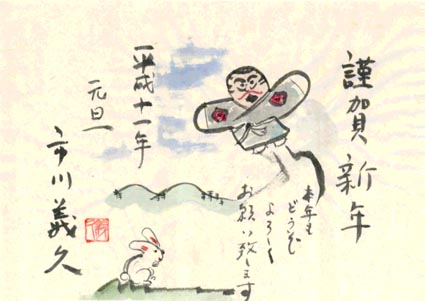 謹賀新年
本年も
どうぞ
よろしく
お願い致します
平成十一年
元旦
市川義久